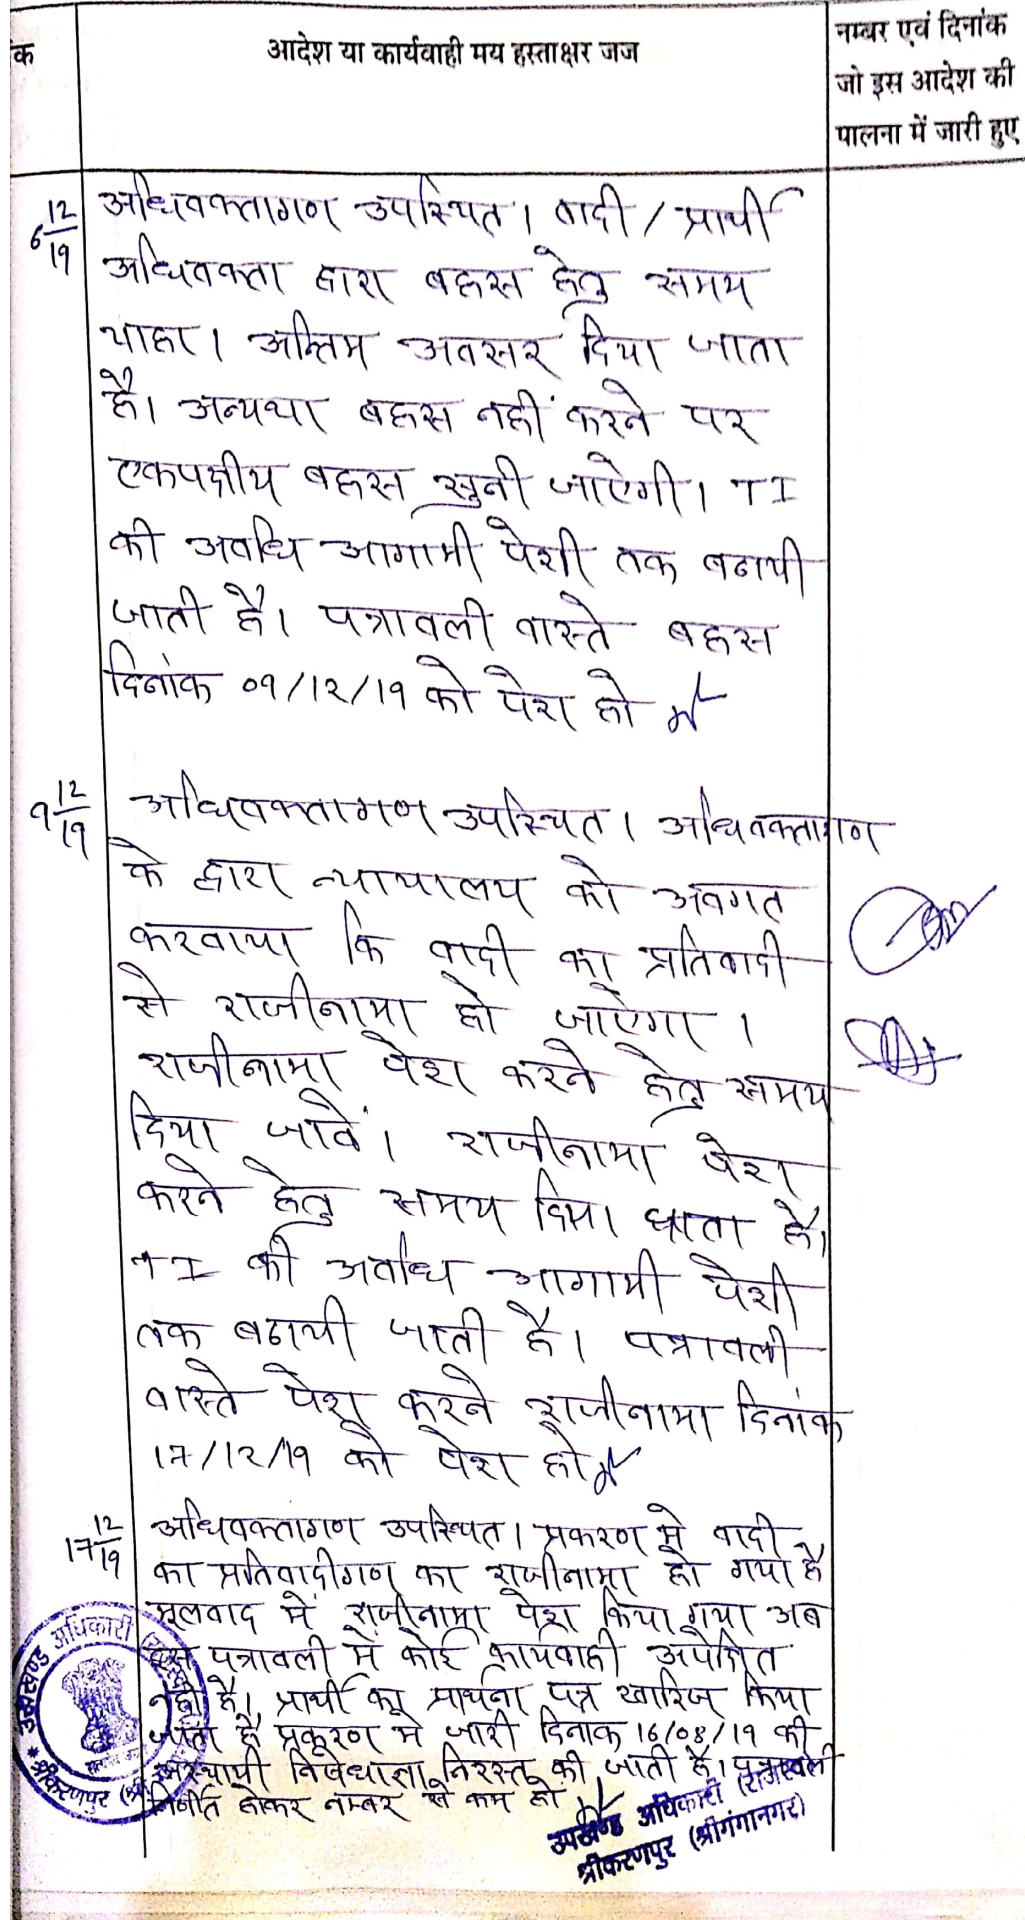 क
आदेश या कार्यवाही मय हस्ताक्षर जज
नम्बर एवं दिनांक
जो इस आदेश की
पालना में जारी हुए
6 12/19
अधिवक्तागण उपस्थित। वादी / प्रार्थी
अधिवक्ता द्वारा बहस हेतु समय
चाहा। अन्तिम अवसर दिया जाता
है। अन्यथा बहस नहीं करने पर
एकपक्षीय बहस सुनी जाऐगी। TI
की अवधि आगामी पेशी तक बढायी
जाती है। पत्रावली वास्ते बहस
दिनांक 09/12/19 को पेश हो
9 12/19
अधिवक्तागण उपस्थित। अधिवक्तागण
के द्वारा न्यायालय को अवगत
करवाया कि वादी का प्रतिवादी
से राजीनामा हो जाऐगा।
राजीनामा पेश करने हेतु समय
दिया जावें। राजीनामा पेश
करने हेतु समय दिया जाता है।
TI की अवधि आगामी पेशी
तक बढायी जाती है। पत्रावली
वास्ते पेश करने राजीनामा दिनांक
17/12/19 को पेश हो
17 12/19
अधिवक्तागण उपस्थित। प्रकरण मे वादी
का प्रतिवादीगण का राजीनामा हो गया है
मूलवाद में राजीनामा पेश किया गया अब
इस पत्रावली में कोई कार्यवाही अपेक्षित
नही है। प्रार्थी का प्रार्थना पत्र खारिज किया
जाता है प्रकरण मे जारी दिनाक 16/08/19 की
अस्थायी निषेधाज्ञा निरस्त की जाती है। पत्रावली
निर्णीत होकर नम्बर से कम हो।
उपखण्ड अधिकारी (राजस्व)
श्रीकरणपुर (श्रीगंगानगर)
उपखण्ड अधिकारी
श्रीकरणपुर